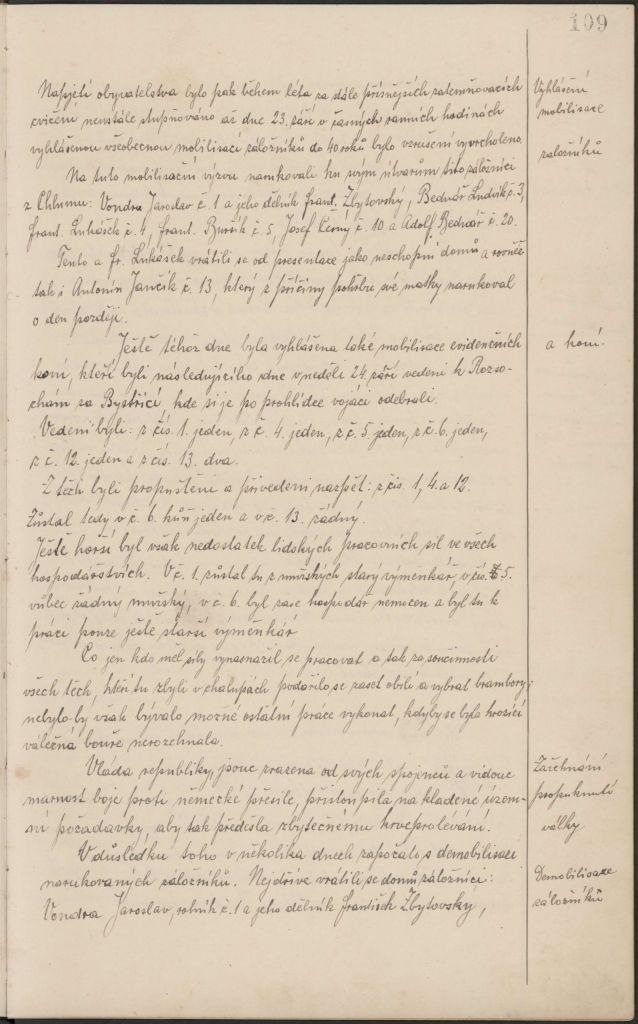 109
Napjetí obyvatelstva bylo pak během léta za stále přísnějších zatemňovacích
cvičení neustále stupňováno až dne 23. září v časných ranních hodinách
vyhlášenou všeobecnou mobilisací záložníků do 40 roků bylo vzrušení vyvrcholeno.
Na tuto mobilisační výzvu narukovali ku svým útvarům tito záložníci
z Chlumu: Vondra Jaroslav č. 1 a jeho dělník Frant. Zbytovský, Bednář Ludvík č. 3,
Frant. Lukášek č. 4, Frant. Buršík č. 5, Josef Černý č. 10 a Adolf Bednář č. 20.
Tento a Fr. Lukášek vrátili se od presentace jako neschopní domů a rovněž
tak i Antonín Jančík č. 13, který z příčiny pohřbu své matky narukoval
o den později.
Ještě téhož dne byla vyhlášena také mobilisace evidenčních
koní, kteří byli následujícího dne v neděli 24. září vedeni k Rozso-
chám za Bystřicí, kde si je po prohlídce vojáci odebrali.
Vedeni byli: z čís. 1. jeden, z č. 4. jeden, z č. 5. jeden, z č. 6. jeden,
z č. 12. jeden a z čís. 13. dva.
Z těch byli propuštěni a přivedeni nazpět: z čís. 1, 4. a 12.
Zůstal tedy v č. 6. kůň jeden a v č. 13. žádný.
Ještě horší byl však nedostatek lidských pracovních sil ve všech
hospodářstvích. V č. 1. zůstal tu z mužských starý výměnkář, v čís. 5.
vůbec žádný mužský, v č. 6. byl zase hospodář nemocen a byl tu k
práci pouze ještě starší výměnkář
Co jen kdo měl síly vynasnažil se pracovat a tak za součinnosti
všech těch, kteří tu zbyli v chalupách podařilo se zaset obilí a vybrat brambory;
nebylo by však bývalo možné ostatní práce vykonat, kdyby se byla hrozící
válečná bouře nerozehnala.
Vláda republiky, jsouc zrazena od svých spojenců a vidouc
marnost boje proti německé přesile, přistoupila na kladené územ-
ní požadavky, aby tak předešla zbytečnému krveprolévání.
V důsledku toho v několika dnech započato s demobilisací
narukovaných záložníků. Nejdříve vrátili se domů záložníci:
Vondra Jaroslav, rolník č. 1 a jeho dělník František Zbytovský,
Vyhlášení
mobilisace
záložníků
a koní.
Zažehnání
propuknutí
války
Demobilisace
záložníků